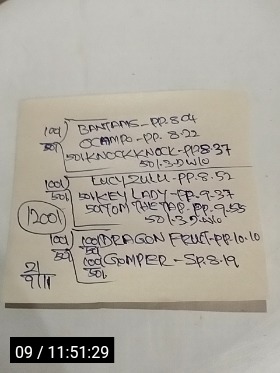 100) BANTAMS-PP.8.04
50) OCAMPO-PP.8.22
50) KNOCKKNOCK-PP.8.37
50).3.D.W/O
100) LUCYZULU-PP.8.52
50) 50) KEY LADY-PP.9.37
50) TOM THE TAP-PP.9.55
50).3.D.W/O
1200)
100) 100) DRAGON FRUIT-PP.10.10
50) 50)
100) GOMPER-SP.8.19
50)
2)
9/11
09 / 11:51:29